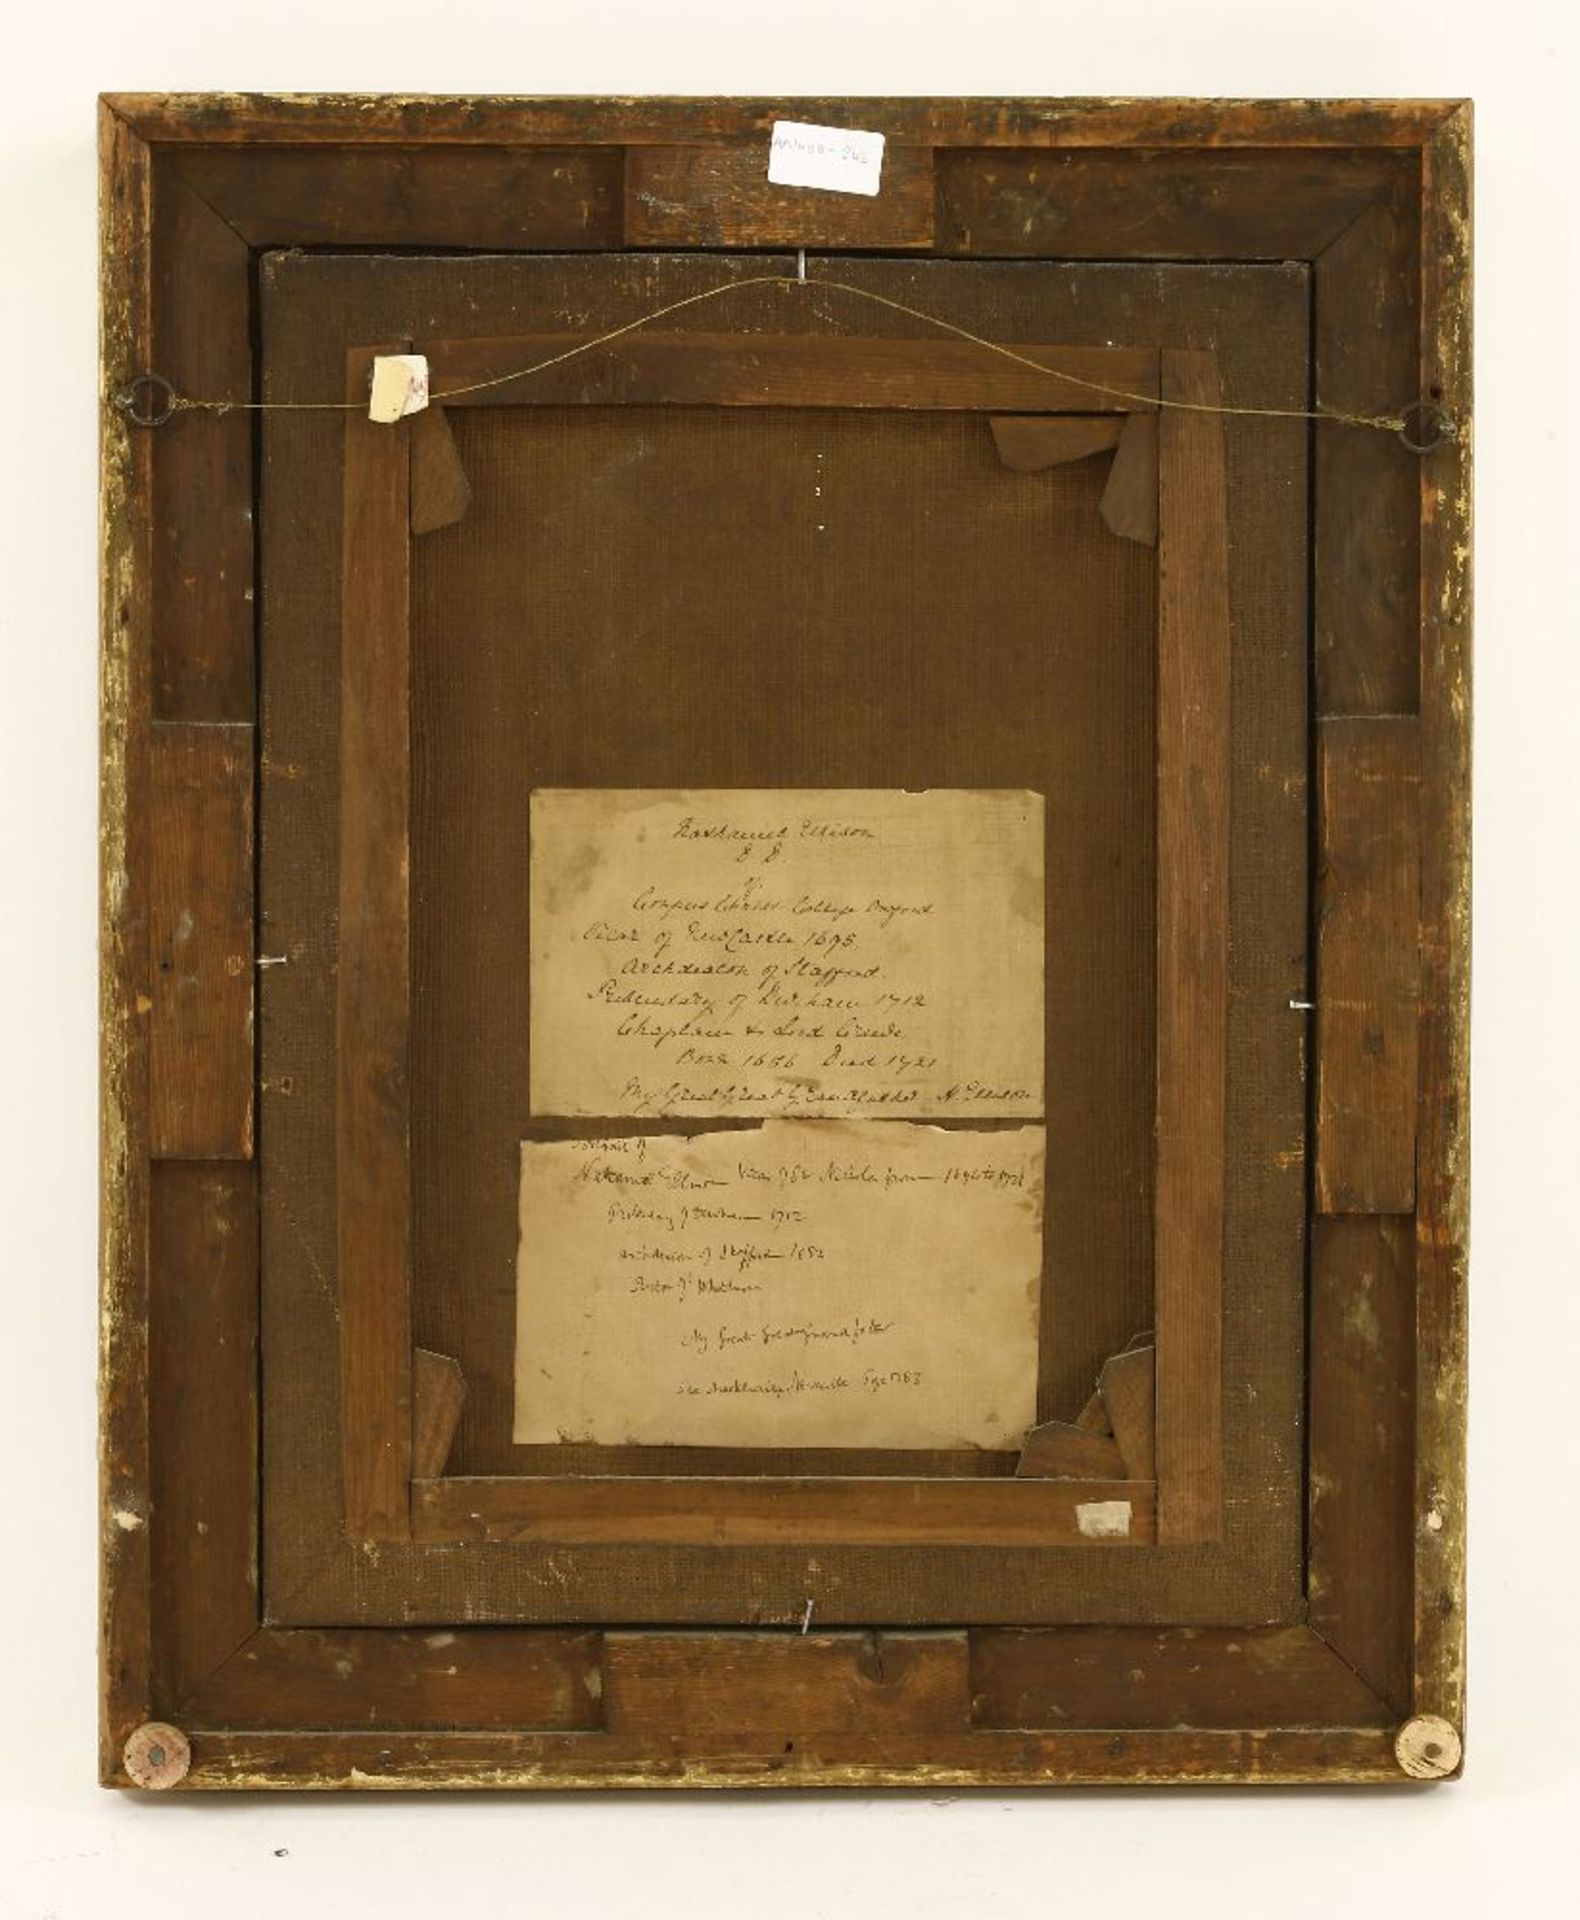 Nathaniel Ellison
D D.
of
Corpus Christi College Oxford
Vicar of NewCastle 1695.
Archdeacon of Stafford.
Prebendary of Durham 1712
Chaplain to Lord Crewe.
Born 1656 Died 1721
My Great Great Grandfather N. Ellison
Portrait of
Nathaniel Ellison Vicar of St Nicholas from to 1721
Prebendary of Durham 1712
archdeacon of Stafford 1682
Rector of Whitburn
My Great Great Grandfather
see Newcastle Page